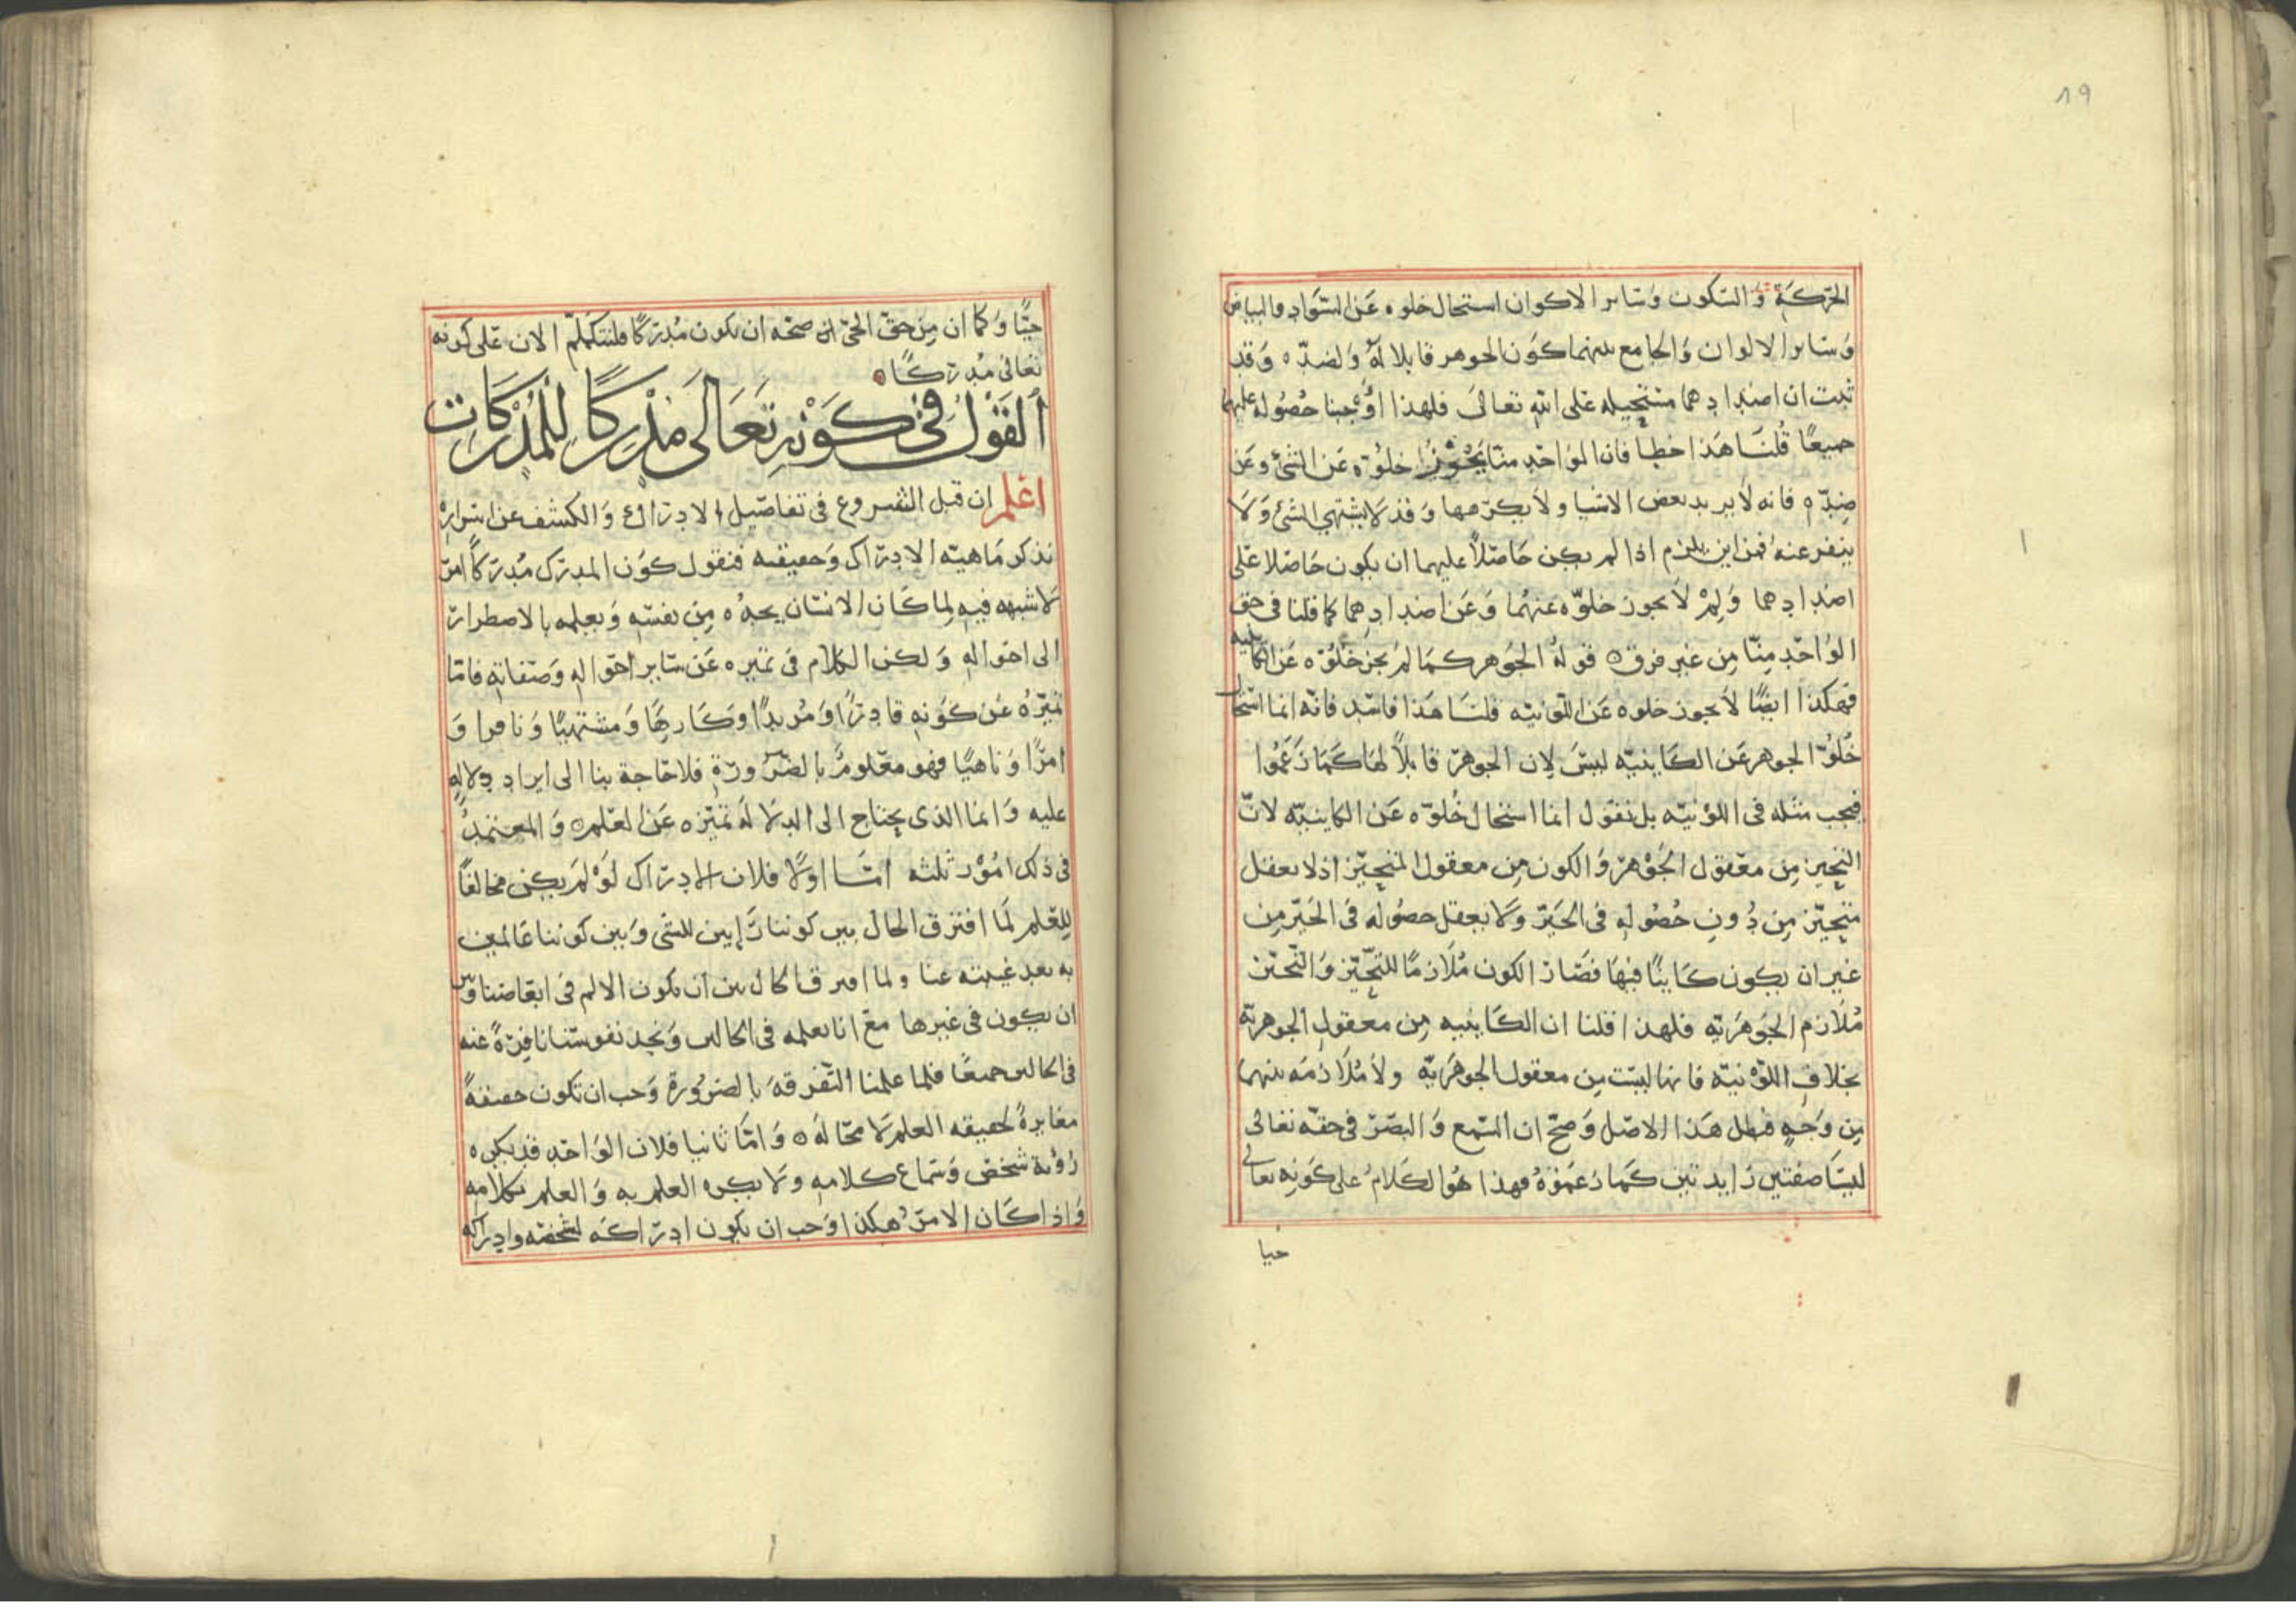 19
الحركة والسكون وسائر الاكوان استحال خلوه عن السواد والبياض
وسائر الالوان والجامع بينهما كون الجوهر قابلا له ولضده وقد
ثبت ان اضدادهما مستحيله على الله تعالى فلهذا اوجبنا حصوله عليهما
جميعًا قلنا هذا خطا فان الواحد منا يجوز خلوه عن الشئ وعن
ضده فانه لا يريد بعض الاشيا ولا يكرهها وقد لا يشتهي الشئ ولا
ينفر عنه فمن اين يلزم اذا لم يكن حاصلاً عليهما ان يكون حاصلا على
اضدادهما ولم لا يجوز خلوه عنهما وعن اضدادهما كما قلنا في حق
الواحد منا من غير فرق ه قوله الجوهر كما لم يجز خلوه عن الكاينيه
فهكذا ايضًا لا يجوز خلوه عن اللونيه قلنا هذا فاسد فانه انما استحال
خلو الجوهر عن الكاينيه ليس لان الجوهر قابلاً لها كما زعموا
فيجب مثله في اللونيه بل نقول انما استحال خلوه عن الكاينيه لان
التحيز من معقول الجوهر والكون من معقول المتحيز اذ لا يعقل
متحيز من دون حصوله في الحيز ولا يعقل حصوله في الحيز من
غير ان يكون كاينًا فيها فصار الكون ملازمًا للتحيز والتحيز
ملازم الجوهريه فلهذا قلنا ان الكاينيه من معقول الجوهريه
بخلاف اللونيه فانها ليست من معقول الجوهريه ولا ملازمه بينهما
من وجهٍ فبطل هذا الاصل وصح ان السمع والبصر في حقه تعالى
ليسا صفتين زايدتين كما زعموه فهذا هو الكلام على كونه تعالى
حيا
حيًّا وكما ان من حق الحي ان صحه ان يكون مدركًا فلنتكلم الان على كونه
تعالى مدركًا ه
القول في كونه تعالى مدركًا للمدركات
اعلم ان قبل الشروع في تفاصيل الادراك والكشف عن اسراره
نذكر ماهيه الادراك وحقيقته فنقول كون المدرك مدركًا امر
لا شبهه فيه لما كان الانسان يجده من نفسه ويعلمه بالاضطرار
الى احواله ولكن الكلام في تميزه عن سائر احواله وصفاته فاما
تميزه عن كونه قادرًا ومريدًا وكارهًا ومشتهيًا ونافرا و
امرًا وناهيًا فهو معلوم بالضرورة فلا حاجة بنا الى ايراد دلاله
عليه وانما الذي يحتاج الى الدلاله تميزه عن العلم ه والمعتمد
في ذلك امور ثلثه اما اولا فلان الادراك لو لم يكن مخالفًا
للعلم لما افترق الحال بين كوننا رايين للشي وبين كوننا عالمين
به بعد غيبته عنا ولما افترقا الحال بين ان يكون الالم في ابعاضنا وبين
ان يكون في غيرها مع انا نعلمه في الحالين ونجد نفوسنا نافرةً عنه
في الحالين جميعًا فلما علمنا التفرقه بالضرورة وجب ان تكون حقيقةً
مغايرةً لحقيقه العلم لا محاله ه واما ثانيا فلان الواحد قد يكره
رؤية شخص وسماع كلامه ولا يكره العلم به والعلم بكلامه
واذا كان الامر هكذا وجب ان يكون ادراكه لشخصه وادراكه